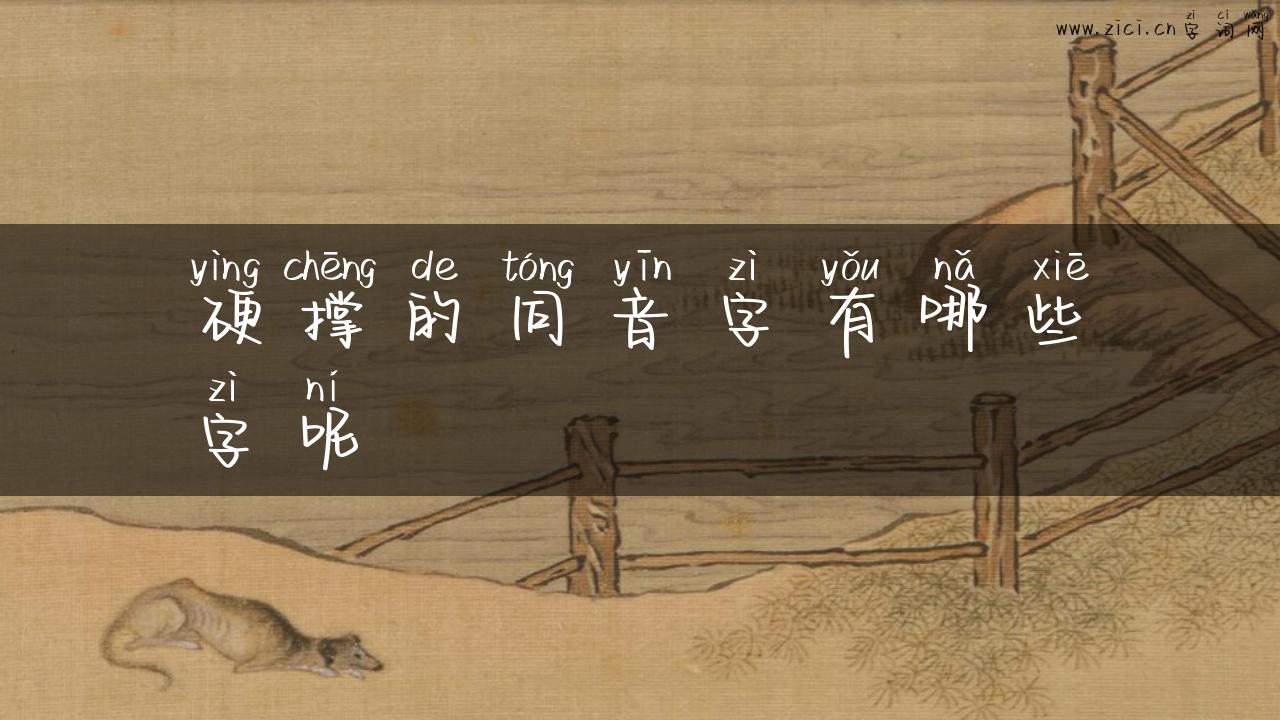 zì cí wǎng
www.zici.cn 字词网
yìng chēng de tóng yīn zì yǒu nǎ xiē
硬撑的同音字有哪些
zì ní
字呢